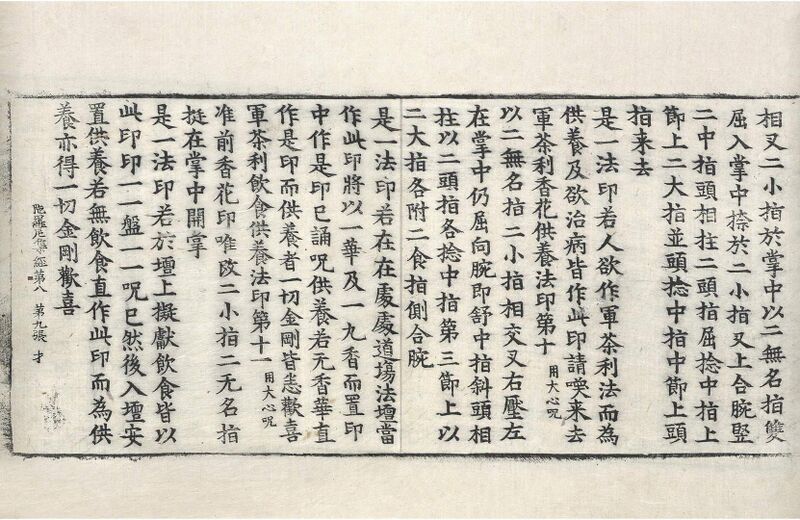 相叉二小指於掌中以二無名指雙
屈入掌中捺於二小指叉上合腕竪
二中指頭相拄二頭指屈捻中指上
節上二大指並頭捻中指中節上頭
指来去
是一法印若人欲作軍茶利法而為
供養及欲治病皆作此印請喚来去
軍茶利香花供養法印第十 用大心呪
以二無名指二小指相交叉右壓左
在掌中仍屈向腕即舒中指斜頭相
拄以二頭指各捻中指第三節上以
二大指各附二食指側合腕
是一法印若在在處處道場法壇當
作此印將以一華及一丸香而置印
中作是印已誦呪供養若无香華直
作是印而供養者一切金剛皆悉歡喜
軍茶利飲食供養法印第十一 用大心呪
准前香花印唯改二小指二无名指
挺在掌中開掌
是一法印若於壇上擬獻飲食皆以
此印印一一盤一一呪已然後入壇安
置供養若無飲食直作此印而為供
養亦得一切金剛歡喜
陁羅尼集經第八 第九張 才